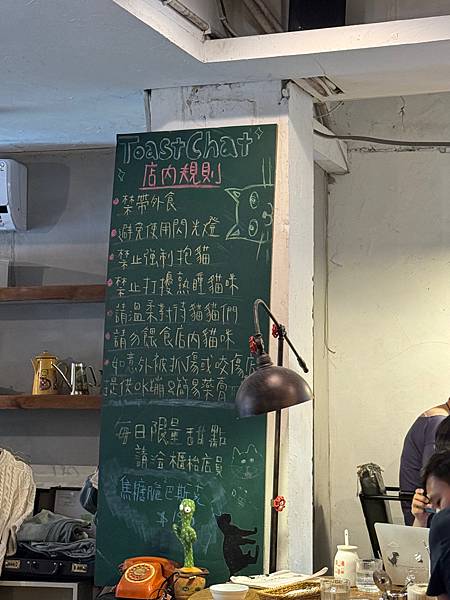 ToastChat
店內規則
禁帶外食
避免使用閃光燈
禁止強制抱貓
禁止打擾熟睡貓咪
請溫柔對待貓貓們
請勿餵食店內貓咪
如意外被抓傷或咬傷
提供OK繃&簡易藥膏
每日限量甜點
請洽櫃枱店員
焦糖脆巴斯克